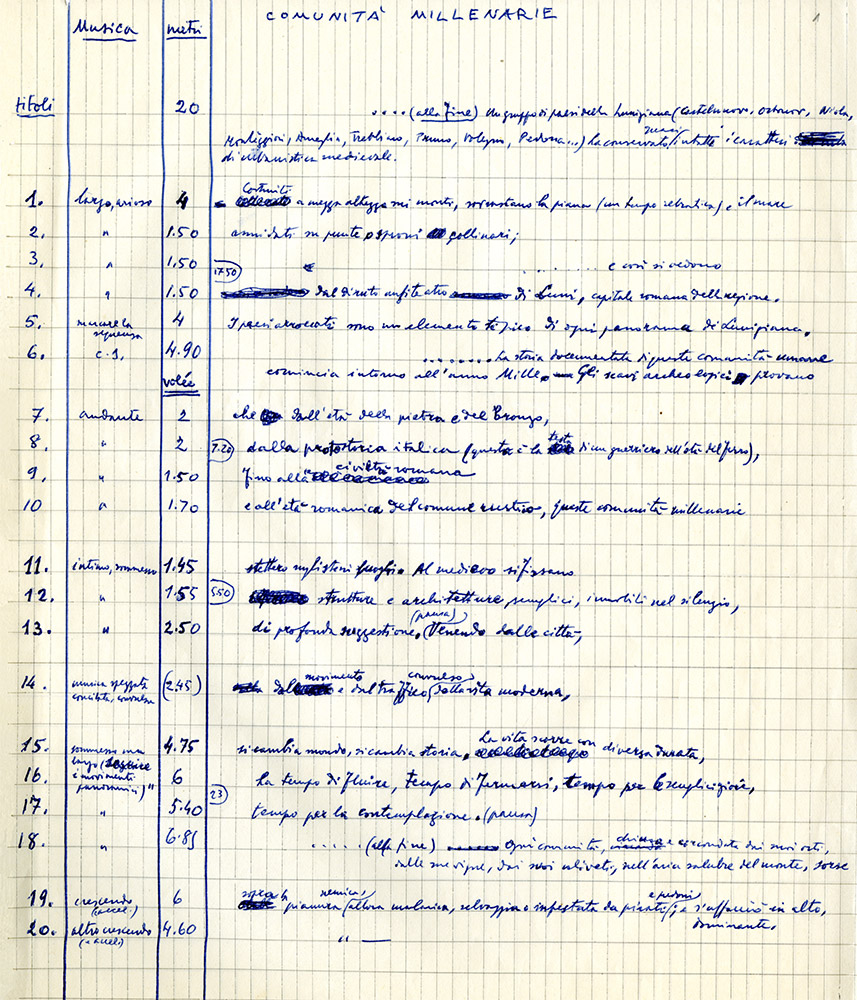 COMUNITÀ MILLENARIE
1
Musica metri
titoli 20 .... (alla fine) Un gruppo di paesi della Lunigiana (Castelnuovo, Ortonovo, Nicola,
Ameglia, Trebbiano, Volegno, ...) ha conservato quasi intatti i caratteri
di urbanistica medievale.
1. largo, arioso 4 Costruiti a mezza altezza sui monti, sovrastano la piana (un tempo ) e il mare
2. " 1.50 annidati su punte o speroni collinari;
3. " 1.50 17.50 ........ e così si vedono
4. " 1.50 dal diruto anfiteatro di Luni, capitale romana della regione.
5. marcare la sequenza 4 I paesi arroccati sono un elemento tipico di ogni panorama di Lunigiana.
6. c.s. 4.90 ........ La storia documentata di queste comunità umane
volée comincia intorno all'anno Mille. Gli scavi archeologici provano
7. andante 2 che dall'età della pietra e del Bronzo,
8. " 2 7.20 dalla protostoria italica (questa è la testa di un guerriero dell'età del ferro),
9. " 1.50 fino alla civiltà romana
10 " 1.70 e all'età romanica del comune rustico, queste comunità millenarie
11. intimo, sommesso 1.45 stettero sugli stessi luoghi. Al medioevo si fissano
12. " 1.55 5.50 strutture e architetture semplici, immobili nel silenzio,
13. " 2.50 di profonda suggestione. (pausa) Venendo dalle città,
14. musica spezzata concitata, convulsa (2.45) dal movimento e dal traffico convulso della vita moderna,
15. sommesso ma 4.75 si cambia mondo, si cambia storia. La vita scorre con diversa durata,
largo (seguire
16. i movimenti panoramici) " 6 ha tempo di fluire, tempo di fermarsi, tempo per le semplici gioie,
17. " 5.40 23 tempo per la contemplazione. (pausa)
18. " 6.85 ..... (alla fine) Ogni comunità, chiusa e circondata dai suoi orti,
dalle sue vigne, dai suoi uliveti, nell'aria salubre del monte, sorse
19. crescendo (accel.) 6 sopra la nemica pianura (allora malarica, selvaggia e infestata da pirati e predoni); e s'affacciò in alto,
dominante.
20. altro crescendo (accel) 4.60 " —